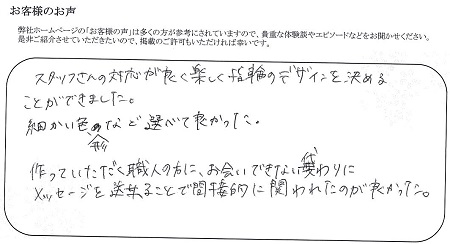 お客様のお声
弊社ホームページの「お客様の声」は多くの方が参考にされていますので、貴重な体験談やエピソードなどをお聞かせください。
是非ご紹介させていただきたいので、掲載のご許可もいただければ幸いです。
スタッフさんの対応が良く楽しく指輪のデザインを決める
ことができました。
細かい色形など選べて良かった。
作っていただく職人の方に、お会いできない代わりに
メッセージを送れることで間接的に関われたのが良かった。